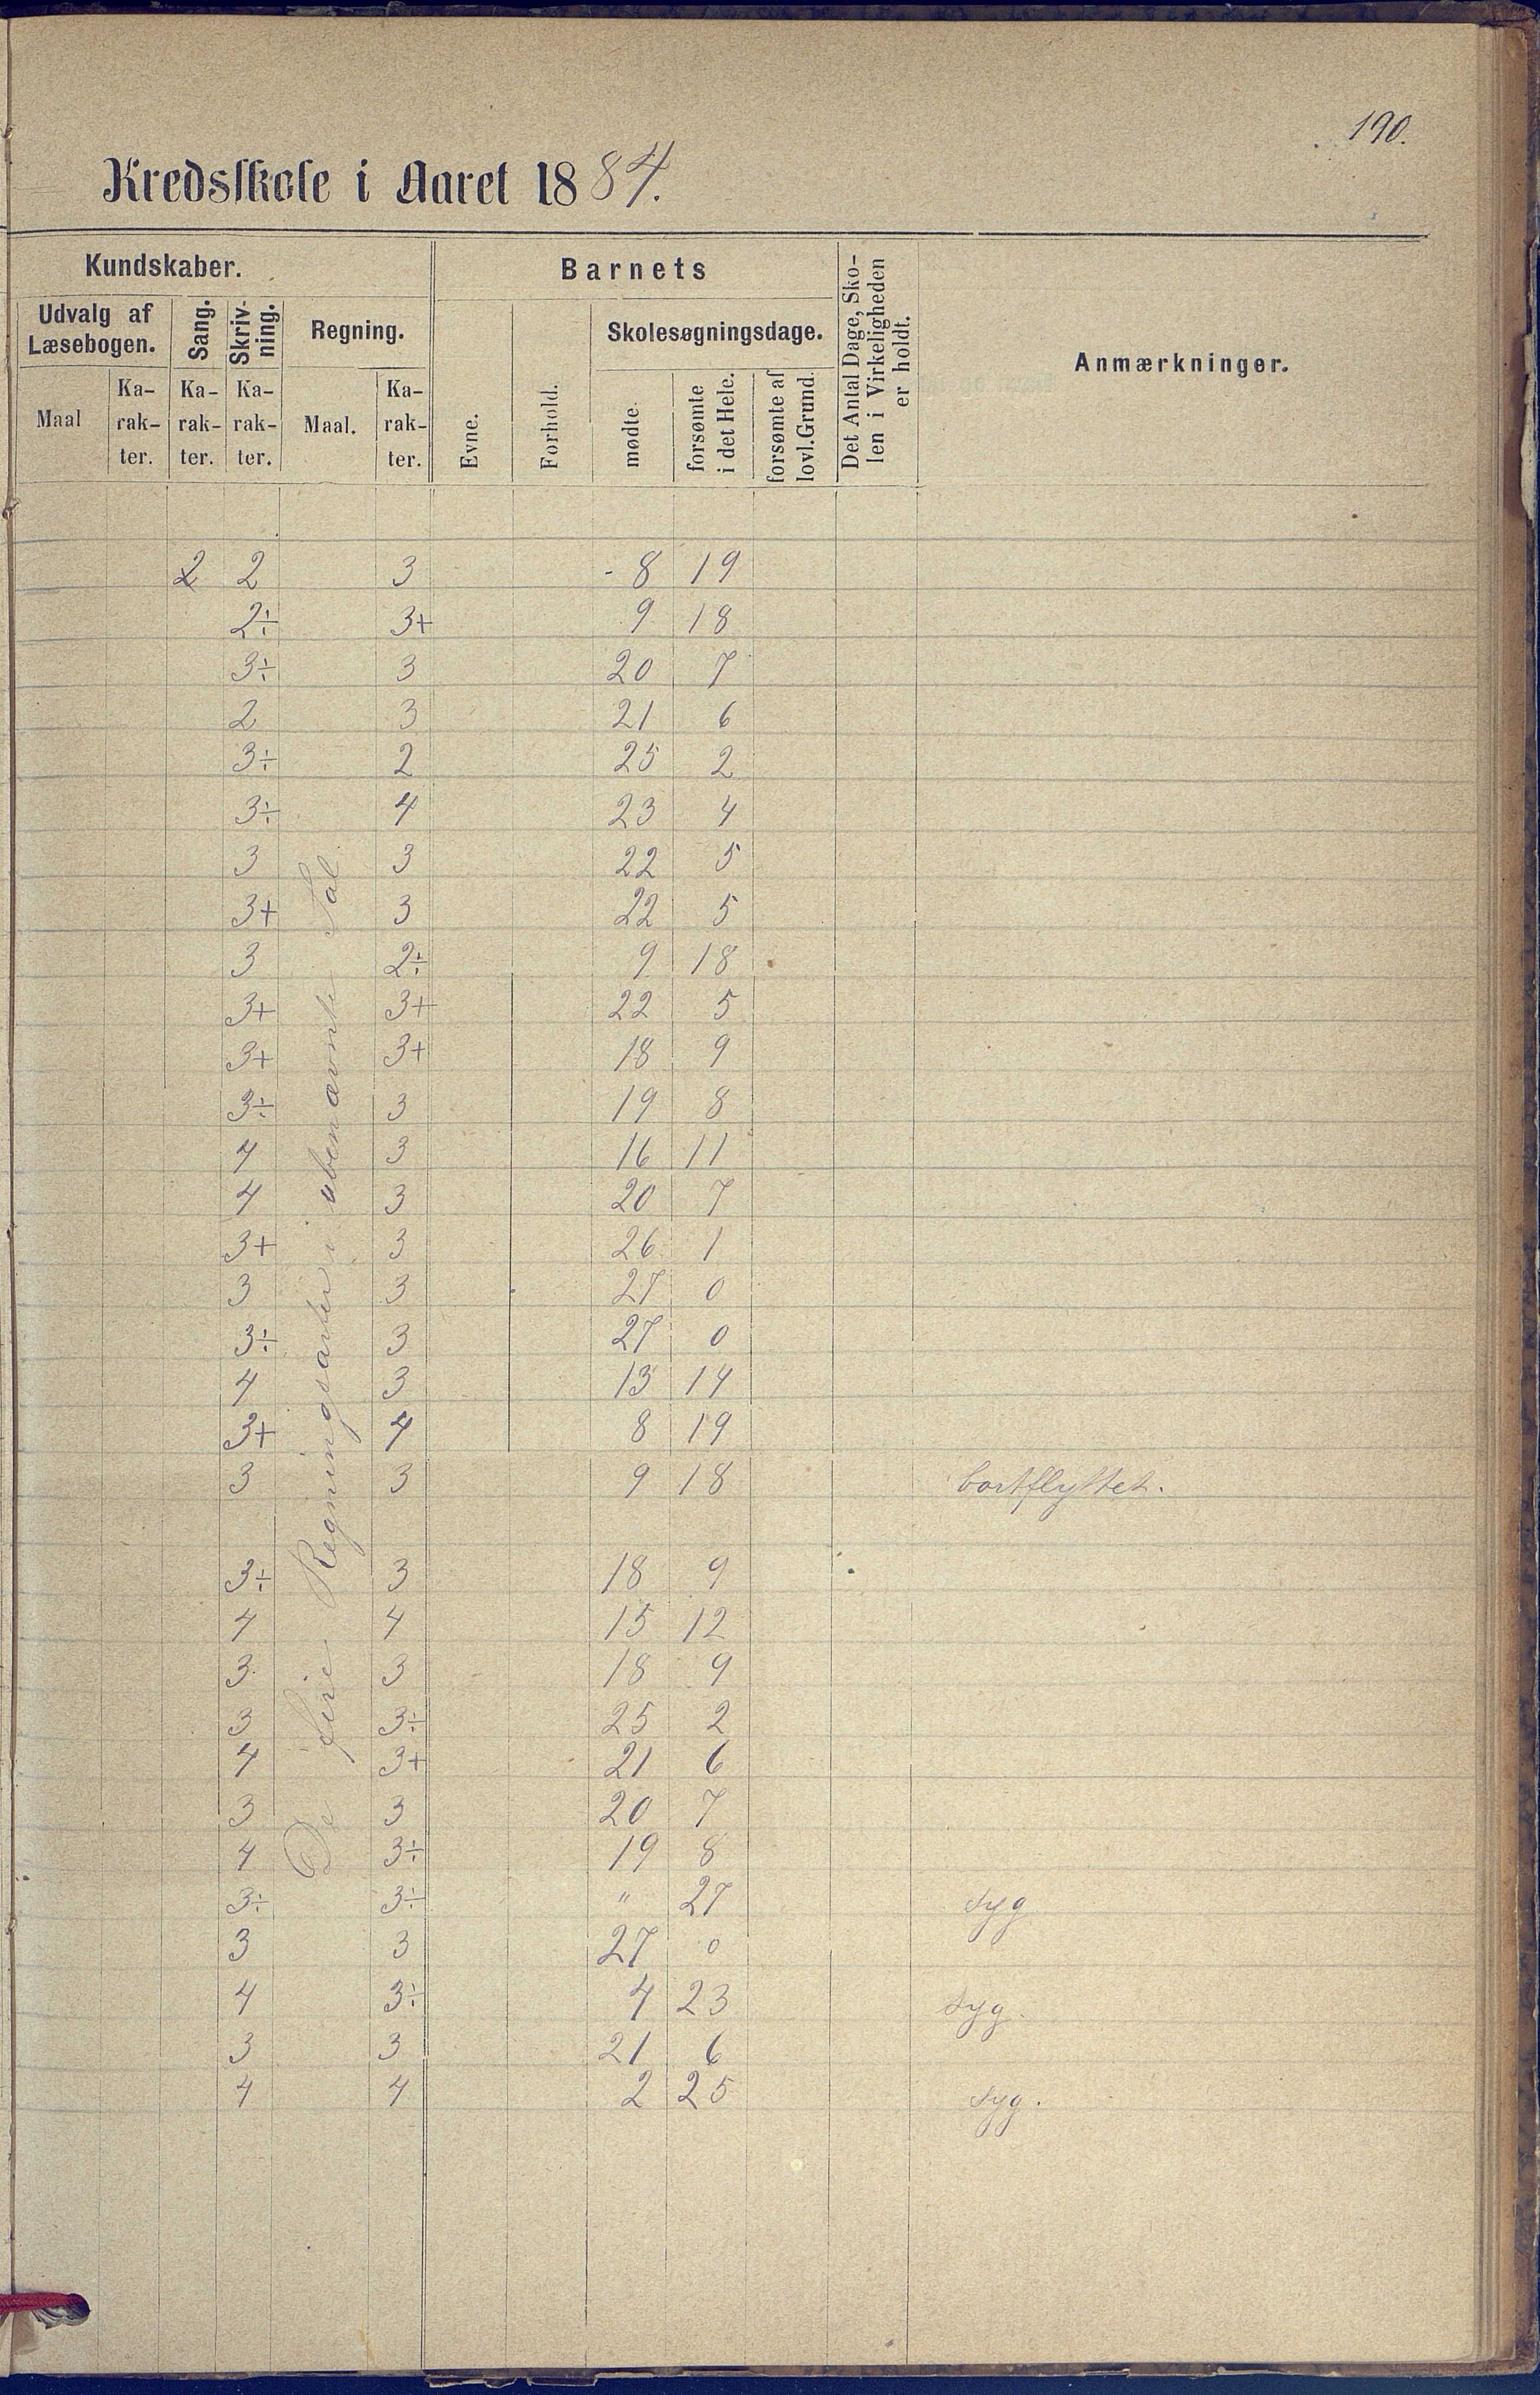 190.
Kredsskole i Aaret 1884.
Kundskaber. Barnets Det Antal Dage, Sko-len i Virkeligheden er holdt. Anmærkninger.
Udvalg af Læsebogen. Sang. Skriv-ning. Regning. Evne. Forhold. Skolesøgningsdage.
Maal Ka-rak-ter. Ka-rak-ter. Ka-rak-ter. Maal. Ka-rak-ter. mødte forsømte i det Hele. forsømte af lovl. Grund.
De fire Regningsarter i ubenævnte Tal.
2 2 3 8 19
2÷ 3+ 9 18
3÷ 3 20 7
2 3 21 6
3÷ 2 25 2
3÷ 4 23 4
3 3 22 5
3+ 3 22 5
3 2÷ 9 18
3+ 3+ 22 5
3+ 3+ 18 9
3÷ 3 19 8
4 3 16 11
4 3 20 7
3+ 3 26 1
3 3 27 0
3÷ 3 27 0
4 3 13 14
3+ 4 8 19
3 3 9 18 bortflyttet.
3÷ 3 18 9
4 4 15 12
3 3 18 9
3 3÷ 25 2
4 3+ 21 6
3 3 20 7
4 3÷ 19 8
3÷ 3÷ " 27 syg
3 3 27 0
4 3÷ 4 23 syg.
3 3 21 6
4 4 2 25 syg.